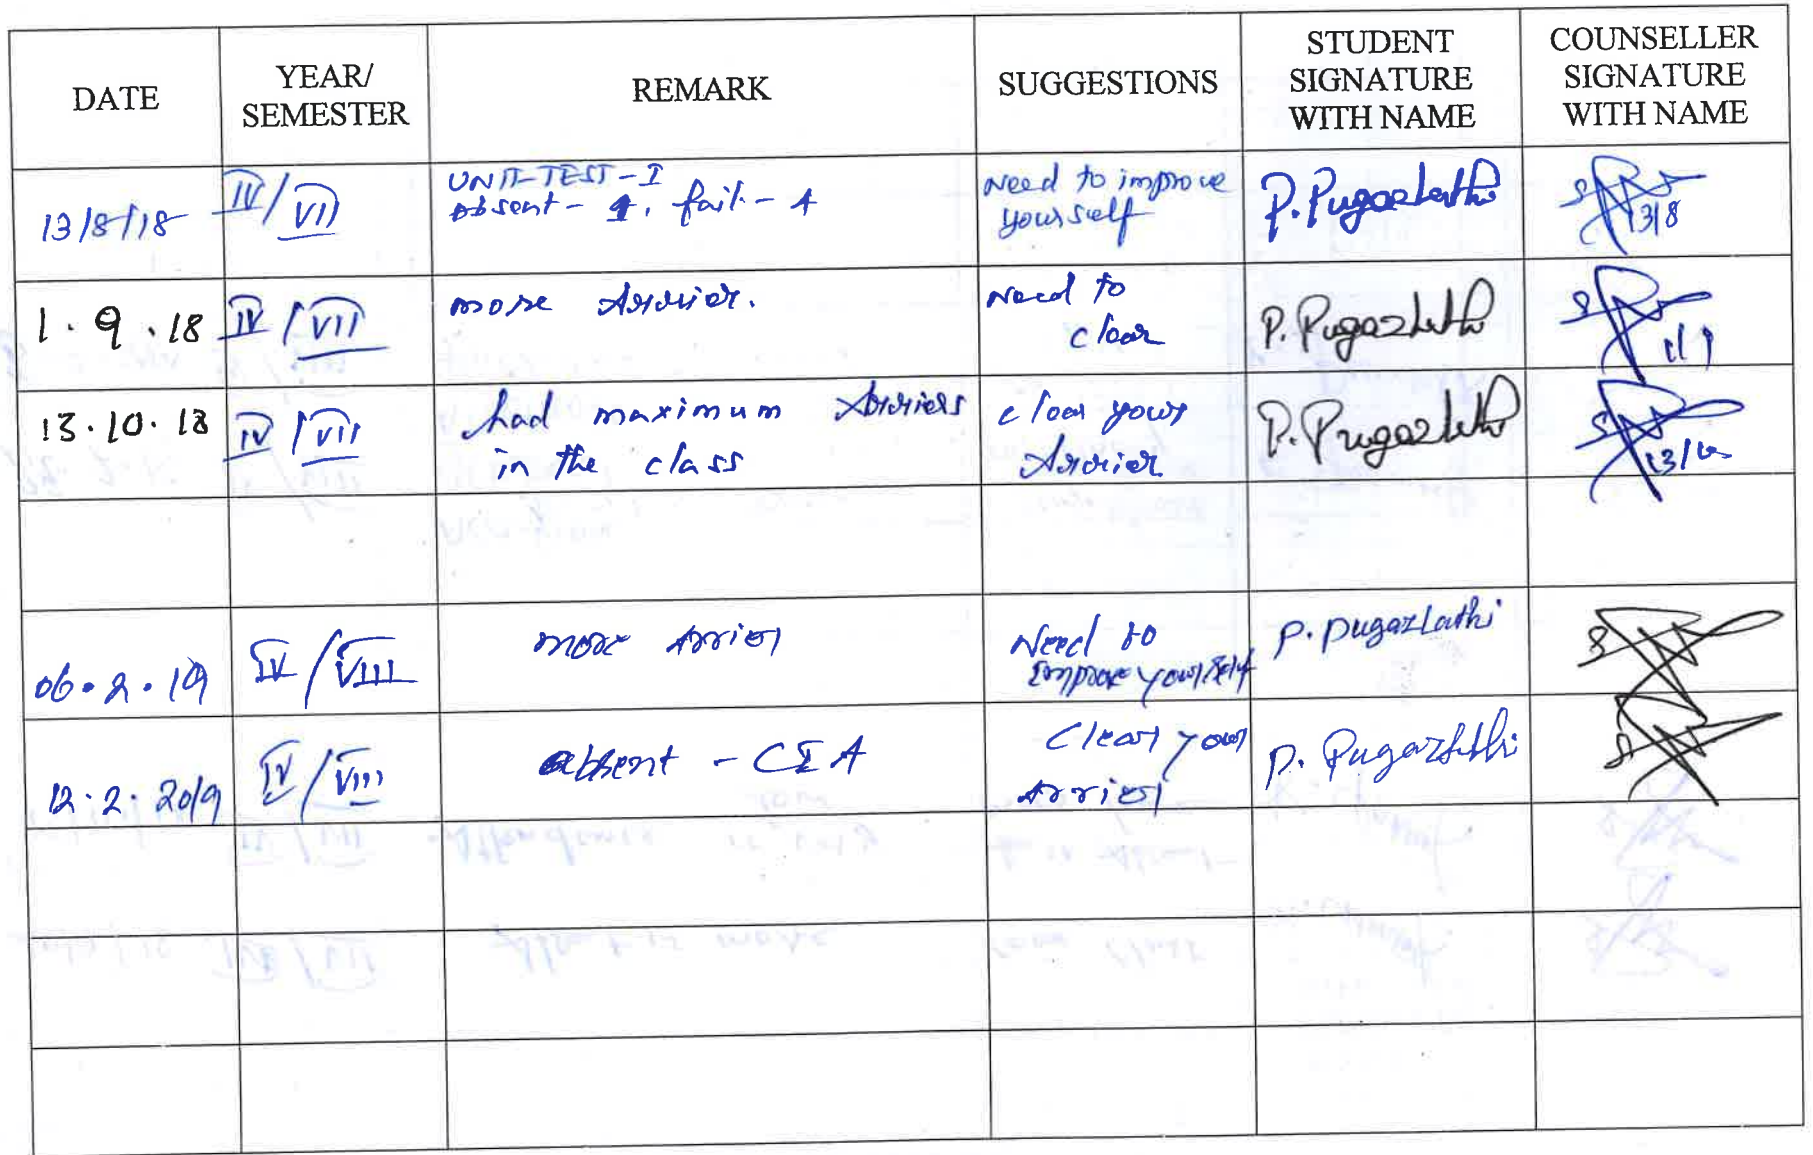 DATE
YEAR/
SEMESTER
REMARK
SUGGESTIONS
STUDENT
SIGNATURE
WITH NAME
COUNSELLER
SIGNATURE
WITH NAME
13/8/18
IV/VII
UNIT-TEST-I
Absent - 1, fail - 4
Need to improve
yourself
P. Pugazhethi
13/8
1.9.18
IV/VII
more Arrier.
Need to
clear
P. Pugazhethi
1/9
13.10.18
IV/VII
had maximum Arriers
in the class
clear your
Arrier
P. Pugazhethi
13/10
06.2.19
IV/VIII
more Arrier
Need to
Improve yourself
P. Pugazhathi
12.2.2019
IV/VIII
absent - CIA
Clear your
Arrier
P. Pugazhethi